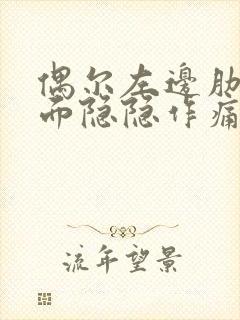 偶尔左邊肋
而隐隐作痛
流年望景